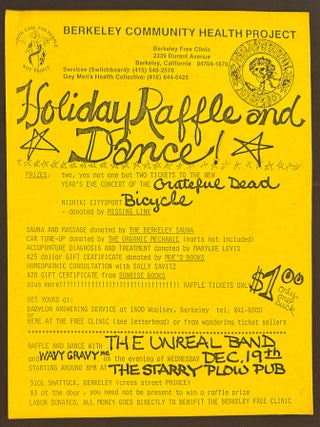 HEALTH CARE FOR PEOPLE
NOT PROFIT
BERKELEY COMMUNITY HEALTH PROJECT
Berkeley Free Clinic
2339 Durant Avenue
Berkeley, California 94704-1670
Services (Switchboard): (415) 548-2570
Gay Men's Health Collective: (415) 644-0425
Holiday Raffle and
Dance!
PRIZES: two, yes not one but TWO TICKETS TO THE NEW
YEAR'S EVE CONCERT OF THE Grateful Dead
NISHIKI CITYSPORT Bicycle
- donated by MISSING LINK
SAUNA AND MASSAGE donated by THE BERKELEY SAUNA
CAR TUNE-UP donated by THE ORGANIC MECHANIC (parts not included)
ACCUPUNTURE DIAGNOSIS AND TREATMENT donated by MARYLEE LEVIS
$25 dollar GIFT CERTIFICATE donated by MOE'S BOOKS
HOMEOPATHIC CONSULTATION with SALLY SAVITZ
$20 GIFT CERTIFICATE from SUNRISE BOOKS
plus more!!!!!!!!!!!!!!!!!!!!!!!!!!!!!!!! RAFFLE TICKETS ONLY $1.00
GET YOURS at:
BABYLON ANSWERING SERVICE at 1600 Woolsey, berkeley tel: 841-6500
or
HERE AT THE FREE CLINIC (see letterhead) or from wandering ticket sellers
RAFFLE AND DANCE WITH THE UNREAL BAND
and WAVY GRAVY MC on the evening of WEDNESDAY DEC. 19th
STARTING AROUND 8PM AT THE STARRY PLOW PUB
3101 SHATTUCK, BERKELEY (cross street PRINCE)
$3 at the door , you need not be present to win a raffle prize
LABOR DONATED, ALL MONEY GOES DIRECTLY TO BENIFIT THE BERKELEY FREE CLINIC